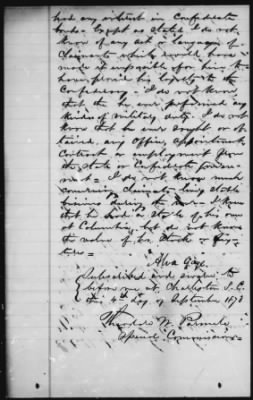 had any interest in Confederate
bonds. Except as stated I do not
know of any act or language of
Claimants which would have
made it impossible for him to
have proved his loyalty to the
Confederacy. I do not know
that he ever performed any
kinds of military duty. I do not
know that he ever sought or ob
tained any office, appointment,
contract or employment from
the State or Confederate Govern
ment. I do not know much
concerning claimants
business during the war. I know
that he had a Stable of his own
at Columbia, but do not know
the value of his Stock or
Alva Gage
Subscribed and sworn to
before me at Charleston S.C.
this 4th day of September 1873
Theodore W. Parmele
Special Commissioner